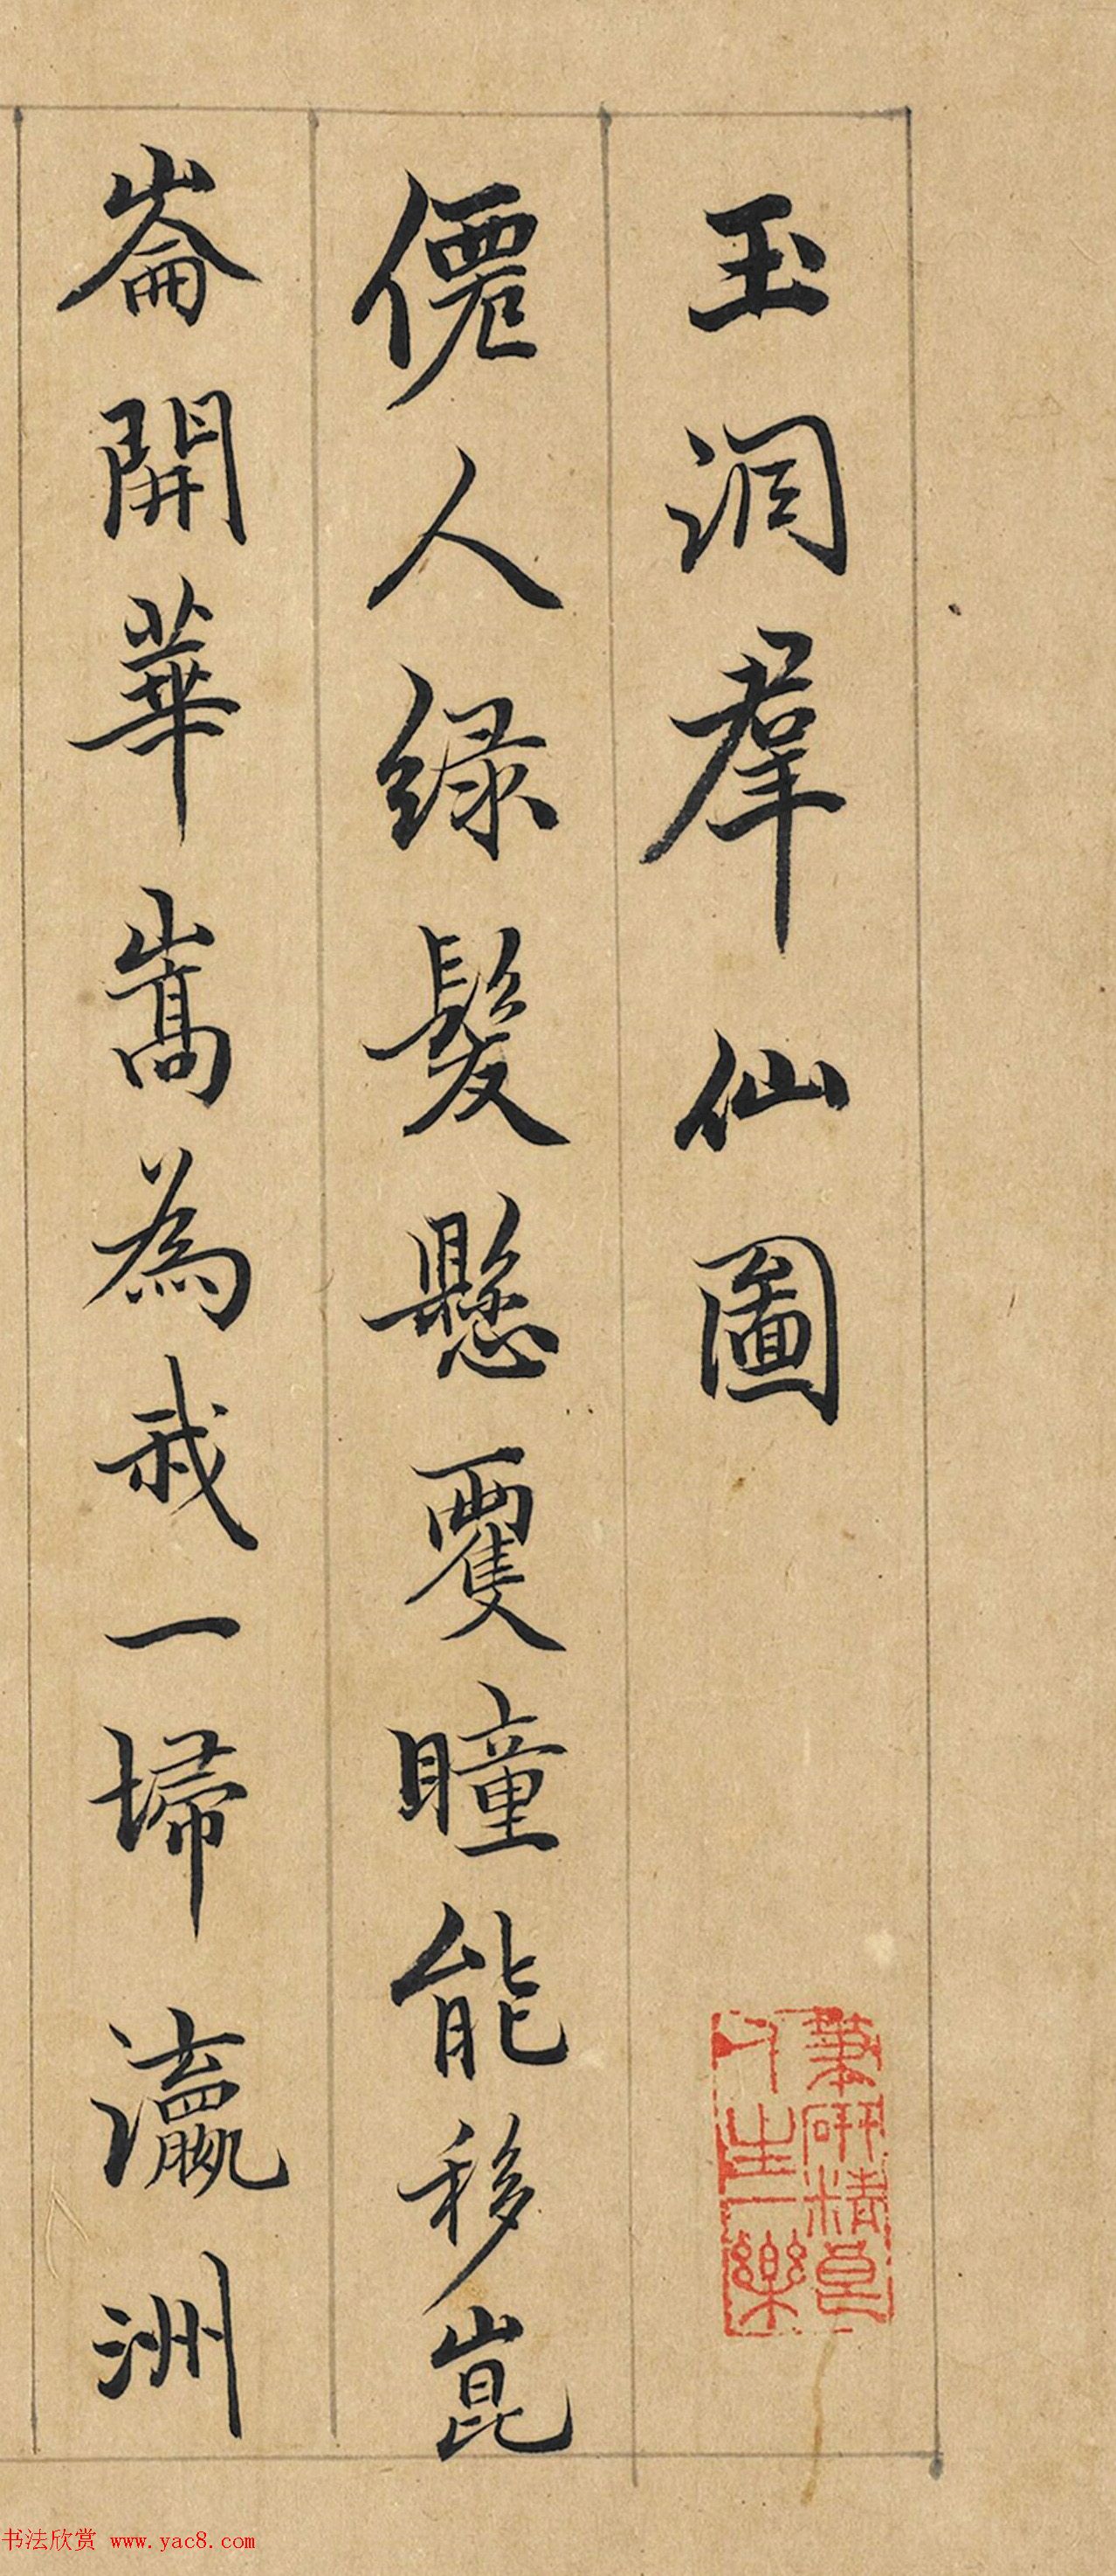 玉洞羣仙圖
僊人緑髮懸矍瞳能移崑
崙開華嵩為我一掃瀛洲
筆研精良
人生一樂
书法欣赏 www.yac8.com